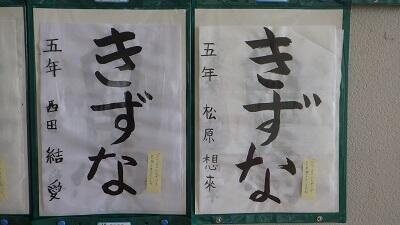 きずな
五年 松原 想來
きずな
五年 西田 結愛